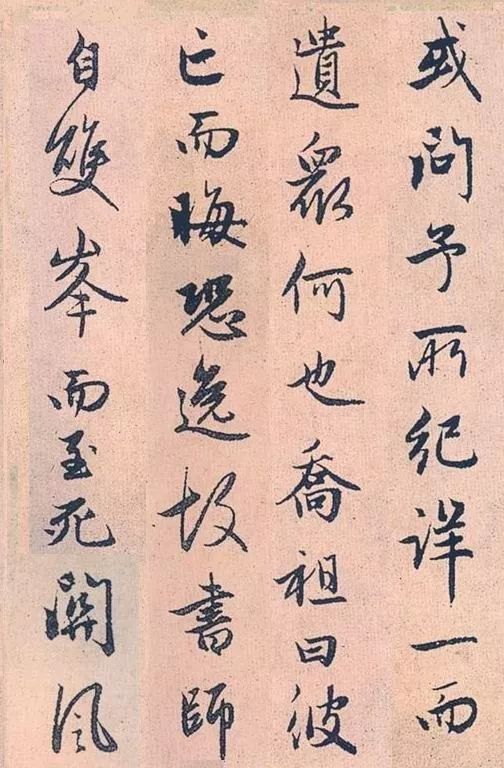 或問予所紀詳一而
遺眾何也喬祖曰彼
亡而晦恐逸故書師
自雙峯而至死關風